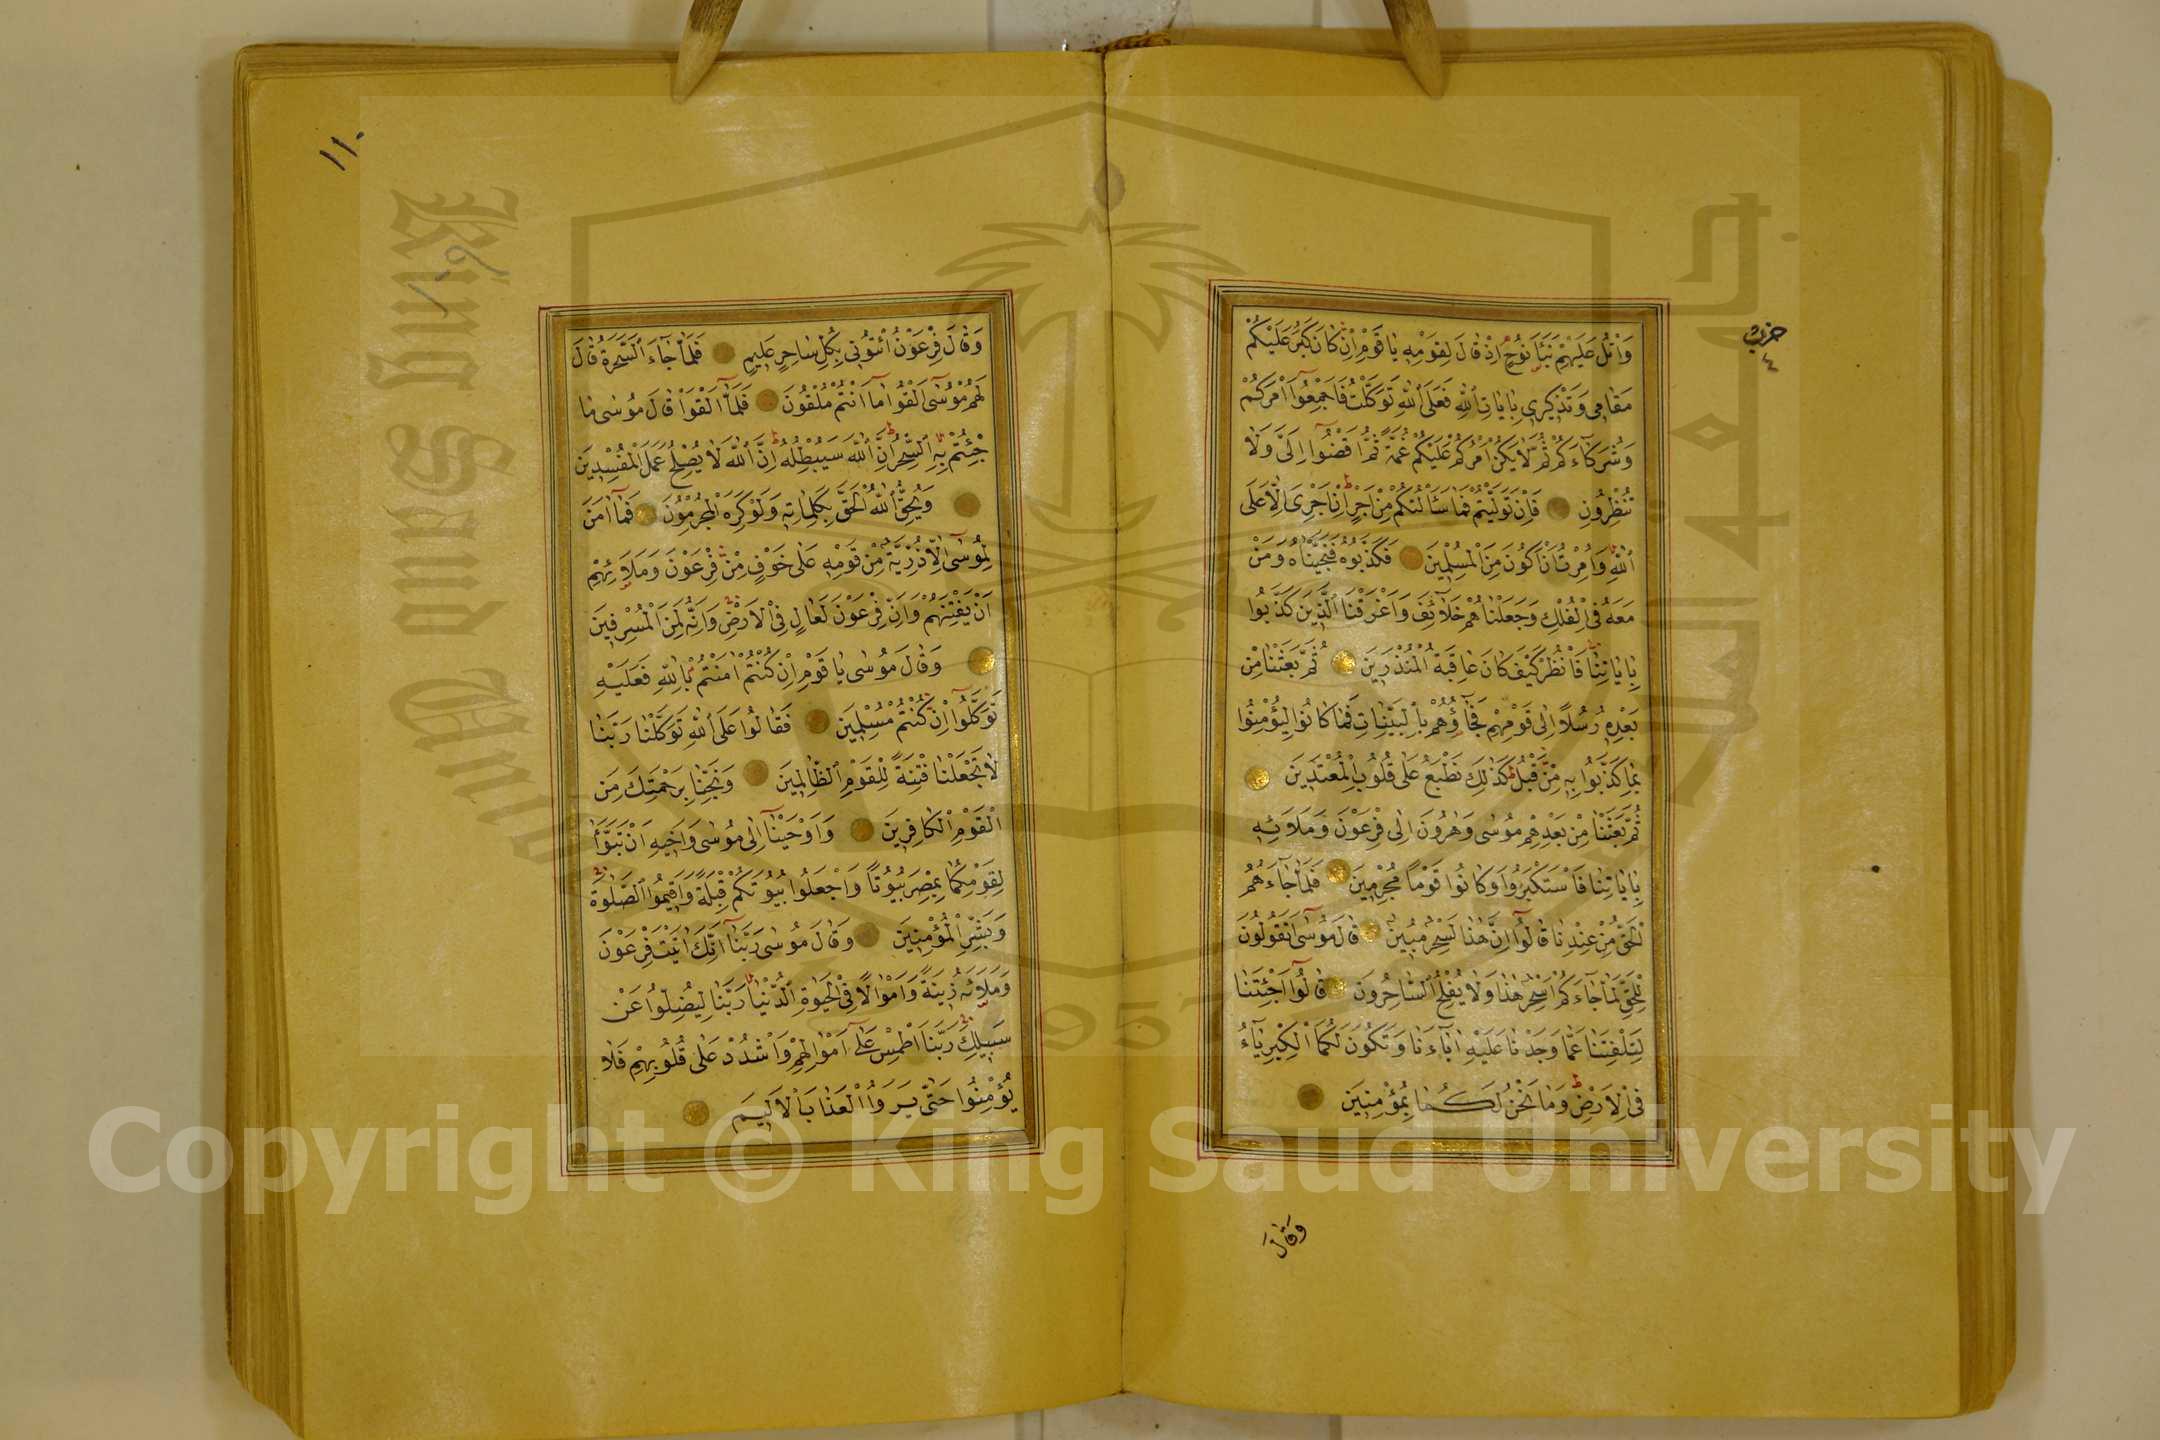 حزب
وَاتْلُ عَلَيْهِمْ نَبَأَ نُوحٍ اِذْ قَالَ لِقَوْمِهِ يَا قَوْمِ اِنْ كَانَ كَبُرَ عَلَيْكُمْ
مَقَامِي وَتَذْكِيرِي بِاٰيَاتِ اللّٰهِ فَعَلَى اللّٰهِ تَوَكَّلْتُ فَاَجْمِعُوٓا اَمْرَكُمْ
وَشُرَكَآءَكُمْ ثُمَّ لَا يَكُنْ اَمْرُكُمْ عَلَيْكُمْ غُمَّةً ثُمَّ اقْضُوٓا اِلَيَّ وَلَا
تُنْظِرُونِ فَاِنْ تَوَلَّيْتُمْ فَمَا سَاَلْتُكُمْ مِنْ اَجْرٍ اِنْ اَجْرِيَ اِلَّا عَلَى
اللّٰهِ وَاُمِرْتُ اَنْ اَكُونَ مِنَ الْمُسْلِمِينَ فَكَذَّبُوهُ فَنَجَّيْنَاهُ وَمَنْ
مَعَهُ فِي الْفُلْكِ وَجَعَلْنَاهُمْ خَلَآئِفَ وَاَغْرَقْنَا الَّذِينَ كَذَّبُوا
بِاٰيَاتِنَا فَانْظُرْ كَيْفَ كَانَ عَاقِبَةُ الْمُنْذَرِينَ ثُمَّ بَعَثْنَا مِنْ
بَعْدِهِ رُسُلًا اِلٰى قَوْمِهِمْ فَجَآؤُهُمْ بِالْبَيِّنَاتِ فَمَا كَانُوا لِيُؤْمِنُوا
بِمَا كَذَّبُوا بِهِ مِنْ قَبْلُ كَذٰلِكَ نَطْبَعُ عَلٰى قُلُوبِ الْمُعْتَدِينَ
ثُمَّ بَعَثْنَا مِنْ بَعْدِهِمْ مُوسٰى وَهٰرُونَ اِلٰى فِرْعَوْنَ وَمَلَائِهِ
بِاٰيَاتِنَا فَاسْتَكْبَرُوا وَكَانُوا قَوْمًا مُجْرِمِينَ فَلَمَّا جَآءَهُمُ
الْحَقُّ مِنْ عِنْدِنَا قَالُوٓا اِنَّ هٰذَا لَسِحْرٌ مُبِينٌ قَالَ مُوسٰٓى اَتَقُولُونَ
لِلْحَقِّ لَمَّا جَآءَكُمْ اَسِحْرٌ هٰذَا وَلَا يُفْلِحُ السَّاحِرُونَ قَالُوٓا اَجِئْتَنَا
لِتَلْفِتَنَا عَمَّا وَجَدْنَا عَلَيْهِ اٰبَآءَنَا وَتَكُونَ لَكُمَا الْكِبْرِيَآءُ
فِي الْاَرْضِ وَمَا نَحْنُ لَكُمَا بِمُؤْمِنِينَ
وَقَالَ
١١٠
وَقَالَ فِرْعَوْنُ ائْتُونِي بِكُلِّ سَاحِرٍ عَلِيمٍ فَلَمَّا جَآءَ السَّحَرَةُ قَالَ
لَهُمْ مُوسٰٓى اَلْقُوا مَآ اَنْتُمْ مُلْقُونَ فَلَمَّآ اَلْقَوْا قَالَ مُوسٰى مَا
جِئْتُمْ بِهِ السِّحْرُ اِنَّ اللّٰهَ سَيُبْطِلُهُ اِنَّ اللّٰهَ لَا يُصْلِحُ عَمَلَ الْمُفْسِدِينَ
وَيُحِقُّ اللّٰهُ الْحَقَّ بِكَلِمَاتِهِ وَلَوْ كَرِهَ الْمُجْرِمُونَ فَمَآ اٰمَنَ
لِمُوسٰٓى اِلَّا ذُرِّيَّةٌ مِنْ قَوْمِهِ عَلٰى خَوْفٍ مِنْ فِرْعَوْنَ وَمَلَائِهِمْ
اَنْ يَفْتِنَهُمْ وَاِنَّ فِرْعَوْنَ لَعَالٍ فِي الْاَرْضِ وَاِنَّهُ لَمِنَ الْمُسْرِفِينَ
وَقَالَ مُوسٰى يَا قَوْمِ اِنْ كُنْتُمْ اٰمَنْتُمْ بِاللّٰهِ فَعَلَيْهِ
تَوَكَّلُوٓا اِنْ كُنْتُمْ مُسْلِمِينَ فَقَالُوا عَلَى اللّٰهِ تَوَكَّلْنَا رَبَّنَا
لَا تَجْعَلْنَا فِتْنَةً لِلْقَوْمِ الظَّالِمِينَ وَنَجِّنَا بِرَحْمَتِكَ مِنَ
الْقَوْمِ الْكَافِرِينَ وَاَوْحَيْنَآ اِلٰى مُوسٰى وَاَخِيهِ اَنْ تَبَوَّاٰ
لِقَوْمِكُمَا بِمِصْرَ بُيُوتًا وَاجْعَلُوا بُيُوتَكُمْ قِبْلَةً وَاَقِيمُوا الصَّلٰوةَ
وَبَشِّرِ الْمُؤْمِنِينَ وَقَالَ مُوسٰى رَبَّنَآ اِنَّكَ اٰتَيْتَ فِرْعَوْنَ
وَمَلَاَهُ زِينَةً وَاَمْوَالًا فِي الْحَيٰوةِ الدُّنْيَا رَبَّنَا لِيُضِلُّوا عَنْ
سَبِيلِكَ رَبَّنَا اطْمِسْ عَلٰٓى اَمْوَالِهِمْ وَاشْدُدْ عَلٰى قُلُوبِهِمْ فَلَا
يُؤْمِنُوا حَتّٰى يَرَوُا الْعَذَابَ الْاَلِيمَ
King Saud University
1957
Copyright © King Saud University